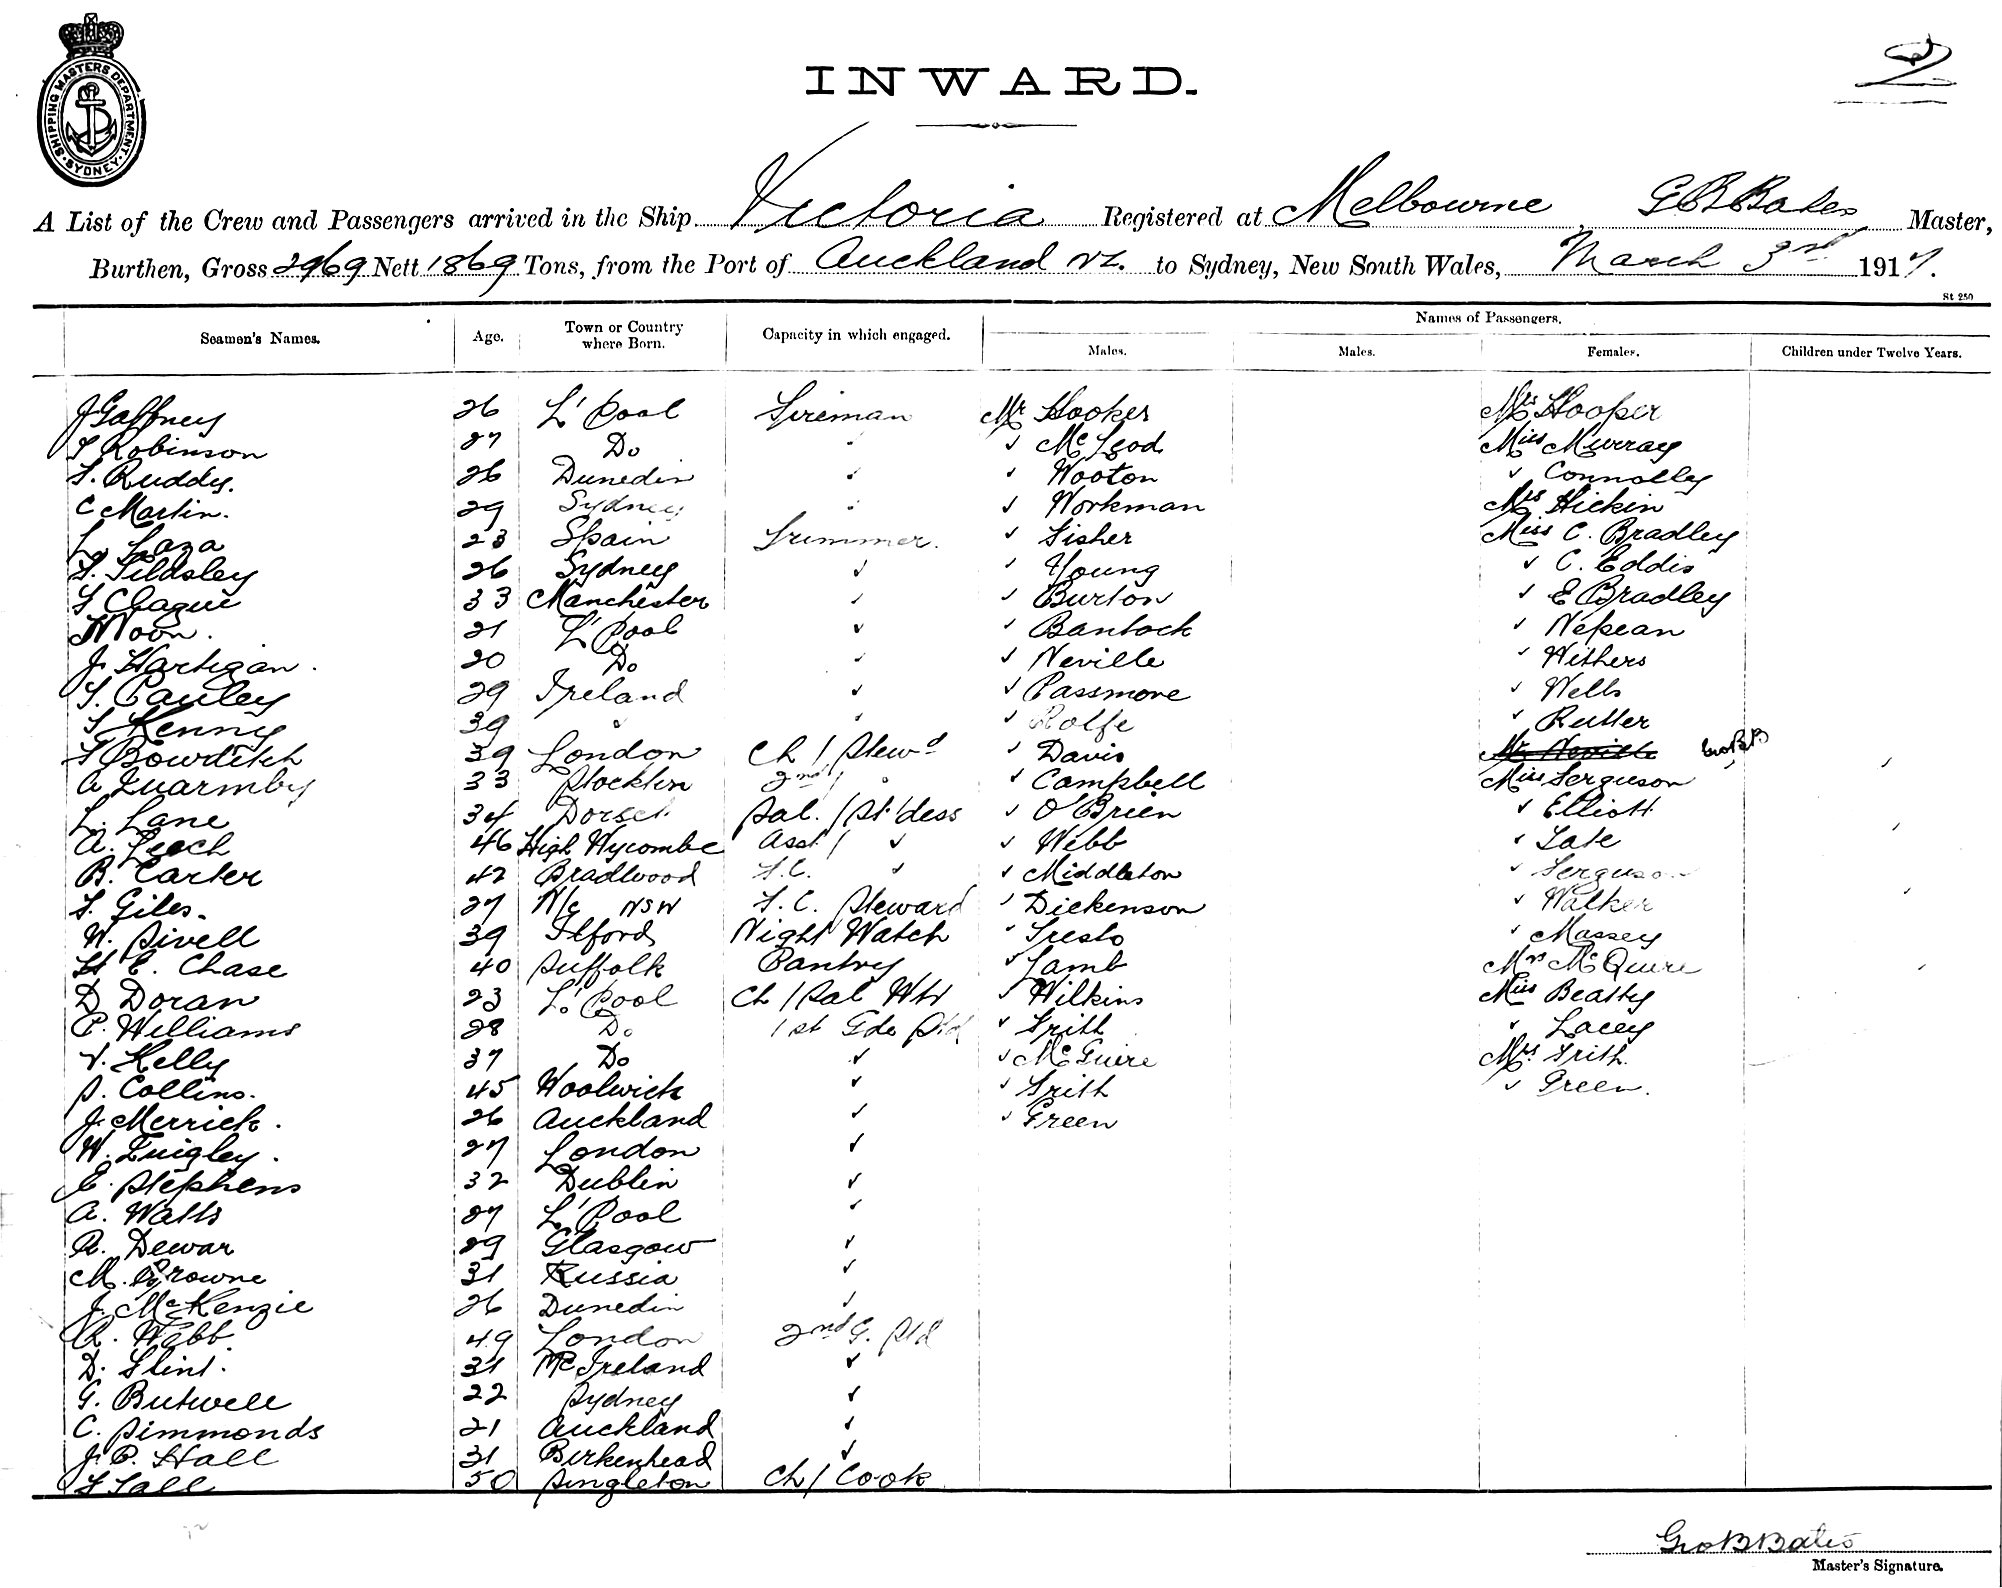 SHIPPING MASTERS DEPARTMENT
SYDNEY
2
INWARD.
A List of the Crew and Passengers arrived in the Ship Victoria Registered at Melbourne G B Bates Master,
Burthen, Gross 2969 Nett 1869 Tons, from the Port of Auckland NZ. to Sydney, New South Wales, March 3rd 1917.
St 250
Seamen's Names. Age. Town or Country where Born. Capacity in which engaged. Names of Passengers.
Males. Males. Females. Children under Twelve Years.
J Gaffney 26 L'Pool Fireman Mr Hooker Mrs Hooper
T Robinson 27 Do " ✓ McLeod Miss Murray
T. Ruddy. 26 Dunedin " ✓ Wooton ✓ Connolley
C Martin. 29 Sydney " ✓ Workman Mrs Hickin
L. Laza 23 Spain Trimmer. ✓ Fisher Miss C. Bradley
T. Tildsley 26 Sydney ✓ ✓ Young ✓ C. Eddis
T Clague 33 Manchester ✓ ✓ Burton ✓ E Bradley
H Noon. 21 L'Pool ✓ ✓ Bantock ✓ Nepean
J. Hartigan. 20 Do ✓ ✓ Neville ✓ Withers
T. Pauley 29 Ireland ✓ ✓ Passmore ✓ Wells
T Kenny 39 " ✓ ✓ Rolfe ✓ Rutter
T Bowditch 39 London Ch / Stewd ✓ Davis Neville Geo B B
A Quarmby 33 Stockton 2nd / " ✓ Campbell Miss Ferguson
L. Lane 34 Dorset. Sal. / St'dess ✓ O'Brien ✓ Elliott
A. Leech 46 High Wycombe Asst / ✓ ✓ Webb ✓ Tate
B. Carter 42 Bradwood T.C. " ✓ Middleton ✓ Ferguson
T. Giles. 27 N/c NSW T. C. Steward ✓ Dickenson ✓ Walker
W. Sivell 39 Ilford Night Watch ✓ Tresto ✓ Massey
H E. Chase 40 Suffolk Pantry ✓ Lamb Mrs McQuire
D Doran 23 L'Pool Ch / Sal Wtr ✓ Wilkins Miss Beatty
P. Williams 28 Do 1st Gde Std ✓ Frith ✓ Lacey
V. Kelly 37 Do ✓ ✓ McGuire Mrs. Frith.
S. Collins. 45 Woolwich ✓ ✓ Frith ✓ Green.
J. Merrick. 26 Auckland ✓ ✓ Green
W. Quigley. 27 London ✓
E. Stephens 32 Dublin ✓
A. Watts 27 L'Pool ✓
R. Dewar 29 Glasgow ✓
M. Browne 31 Russia ✓
J. McKenzie 26 Dunedin ✓
R. Webb 49 London 2nd G. Std
D. Flint. 31 Ireland ✓
G. Butwell 22 Sydney ✓
C. Simmonds 21 Auckland ✓
J. P. Hall 31 Birkenhead ✓
T Tall 50 Singleton Ch / Cook
Geo B Bates
Master's Signature.